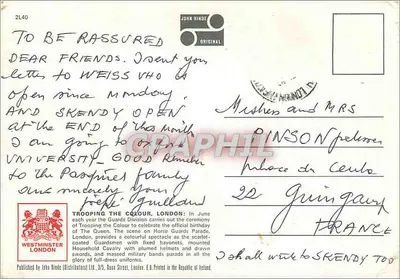 2L40
JOHN HINDE
ORIGINAL
TO BE RASSURED
DEAR FRIENDS. I sent you
letter to WEISS VHO is
open since Monday.
AND SKENDY OPEN
at the END of this Month
I am going to
UNIVERSITY - GOOD
to the family
and sincerely your
LONDON
Misters and MRS
PINSON
place du Centre
22 Guingamp
FRANCE
I shall write to SKENDY TOO
GRAPHIL
WESTMINSTER
LONDON
TROOPING THE COLOUR, LONDON: In June
each year the Guards Division carries out the ceremony
of Trooping the Colour to celebrate the official birthday
of The Queen. The scene on Horse Guards Parade,
London, provides a colourful spectacle as the scarlet-
coated Guardsmen with fixed bayonets, mounted
Household Cavalry with plumed helmets and drawn
swords, and massed military bands parade in all the
glory of full-dress uniforms.
Distributed by John Hinde (Distributors) Ltd., Printed in the Republic of Ireland.